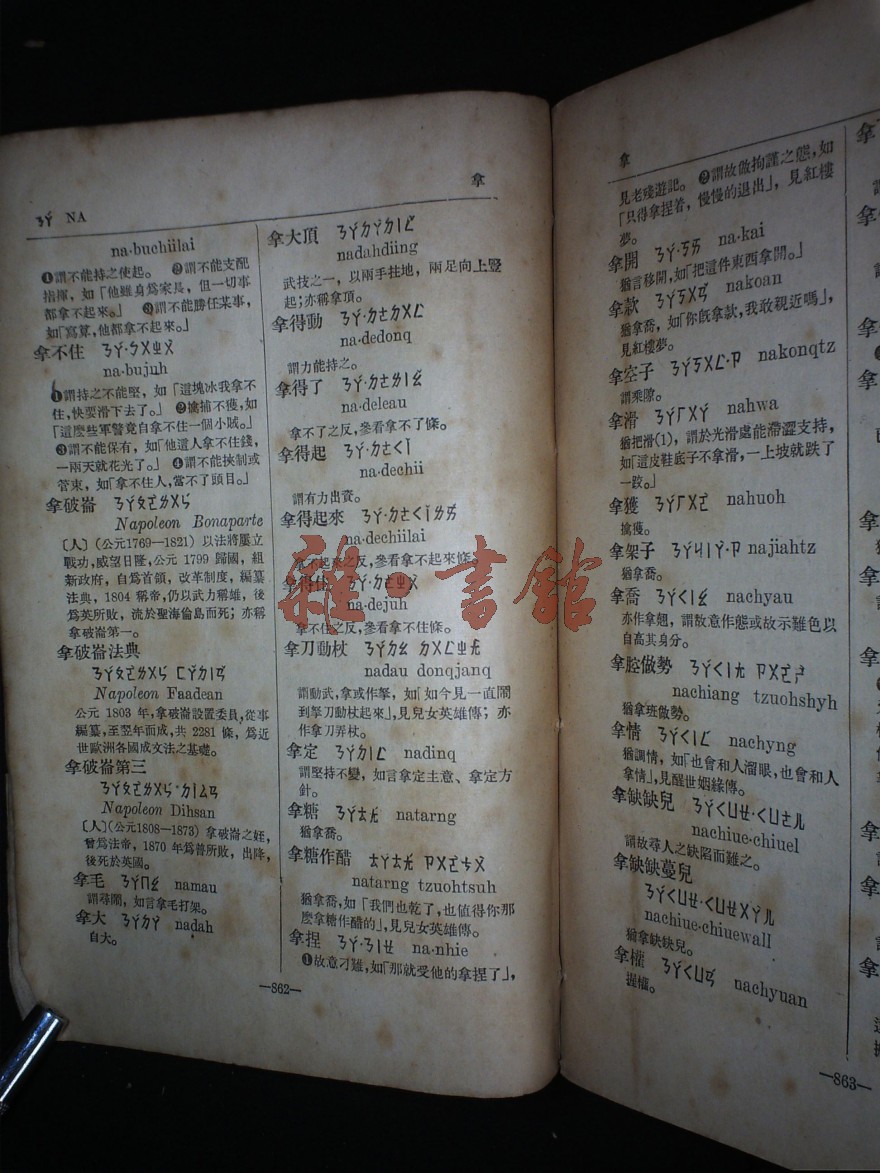 ㄋㄚˊ NA
拿
na·buchiilai
❶謂不能持之使起。 ❷謂不能支配
指揮，如「他雖身爲家長，但一切事
都拿不起來。」 ❸謂不能勝任某事，
如「寫算，他都拿不起來。」
拿不住 ㄋㄚˊ·ㄅㄨㄓㄨˋ
na·bujuh
❶謂持之不能堅，如「這塊冰我拿不
住，快要滑下去了。」 ❷擒捕不獲，如
「這麼些軍警竟自拿不住一個小賊。」
❸謂不能保有，如「他這人拿不住錢，
一兩天就花光了。」 ❹謂不能挾制或
管束，如「拿不住人，當不了頭目。」
拿破崙 ㄋㄚˊㄆㄛˋㄌㄨㄣˊ
Napoleon Bonaparte
〔人〕(公元1769—1821) 以法將屢立
戰功，威望日隆，公元 1799 歸國，組
新政府，自爲首領，改革制度，編纂
法典，1804 稱帝，仍以武力稱雄，後
爲英所敗，流於聖海倫島而死；亦稱
拿破崙第一。
拿破崙法典
ㄋㄚˊㄆㄛˋㄌㄨㄣˊ ㄈㄚˇㄉㄧㄢˇ
Napoleon Faadean
公元 1803 年，拿破崙設置委員，從事
編纂，至翌年而成，共 2281 條，爲近
世歐洲各國成文法之基礎。
拿破崙第三
ㄋㄚˊㄆㄛˋㄌㄨㄣˊ·ㄉㄧˋㄙㄢ
Napoleon Dihsan
〔人〕(公元1808—1873) 拿破崙之姪，
曾爲法帝，1870 年爲普所敗，出降，
後死於英國。
拿毛 ㄋㄚˊㄇㄠˊ namau
謂尋鬧，如言拿毛打架。
拿大 ㄋㄚˊㄉㄚˋ nadah
自大。
拿大頂 ㄋㄚˊㄉㄚˋㄉㄧㄥˇ
nadahdiing
武技之一，以兩手拄地，兩足向上豎
起；亦稱拿頂。
拿得動 ㄋㄚˊ·ㄉㄜㄉㄨㄥˋ
na·dedonq
謂力能持之。
拿得了 ㄋㄚˊ·ㄉㄜㄌㄧㄠˇ
na·deleau
拿不了之反，參看拿不了條。
拿得起 ㄋㄚˊ·ㄉㄜㄑㄧˇ
na·dechii
謂有力出資。
拿得起來 ㄋㄚˊ·ㄉㄜㄑㄧˇㄌㄞˊ
na·dechiilai
拿不起來之反，參看拿不起來條。
拿得住 ㄋㄚˊ·ㄉㄜㄓㄨˋ
na·dejuh
拿不住之反，參看拿不住條。
拿刀動杖 ㄋㄚˊㄉㄠ ㄉㄨㄥˋㄓㄤˋ
nadau donqjanq
謂動武，拿或作拏，如「如今見一直鬧
到拏刀動杖起來」，見兒女英雄傳；亦
作拿刀弄杖。
拿定 ㄋㄚˊㄉㄧㄥˋ nadinq
謂堅持不變，如言拿定主意、拿定方
針。
拿糖 ㄋㄚˊㄊㄤˊ natarng
猶拿喬。
拿糖作醋 ㄋㄚˊㄊㄤˊ ㄗㄨㄛˋㄘㄨˋ
natarng tzuohtsuh
猶拿喬，如「我們也乾了，也值得你那
麼拿糖作醋的」，見兒女英雄傳。
拿捏 ㄋㄚˊ·ㄋㄧㄝ na·nhie
❶故意刁難，如「那就受他的拿捏了」，
—862—
拿
見老殘遊記。 ❷謂故做拘謹之態，如
「只得拿捏着，慢慢的退出」，見紅樓
夢。
拿開 ㄋㄚˊ·ㄎㄞ na·kai
猶言移開，如「把這件東西拿開。」
拿款 ㄋㄚˊㄎㄨㄢˇ nakoan
猶拿喬，如「你旣拿款，我敢親近嗎」，
見紅樓夢。
拿空子 ㄋㄚˊㄎㄨㄥˋ·ㄗ nakonqtz
謂乘隙。
拿滑 ㄋㄚˊㄏㄨㄚˊ nahwa
猶把滑(1)，謂於光滑處能帶澀支持，
如「這皮鞋底子不拿滑，一上坡就跌了
一跤。」
拿獲 ㄋㄚˊㄏㄨㄛˋ nahuoh
擒獲。
拿架子 ㄋㄚˊㄐㄧㄚˋ·ㄗ najiahtz
猶拿喬。
拿喬 ㄋㄚˊㄑㄧㄠˊ nachyau
亦作拿翹，謂故意作態或故示難色以
自高其身分。
拿腔做勢 ㄋㄚˊㄑㄧㄤ ㄗㄨㄛˋㄕˋ
nachiang tzuohshyh
猶拿班做勢。
拿情 ㄋㄚˊㄑㄧㄥˊ nachyng
猶調情，如「也會和人溜眼，也會和人
拿情」，見醒世姻緣傳。
拿缺缺兒 ㄋㄚˊㄑㄩㄝ·ㄑㄩㄜㄦ
nachiue·chiuel
謂故尋人之缺陷而難之。
拿缺缺蔓兒
ㄋㄚˊㄑㄩㄝ·ㄑㄩㄝㄨㄚˋㄦ
nachiue·chiuewall
猶拿缺缺兒。
拿權 ㄋㄚˊㄑㄩㄢˊ nachyuan
握權。
—863—
雜·書館